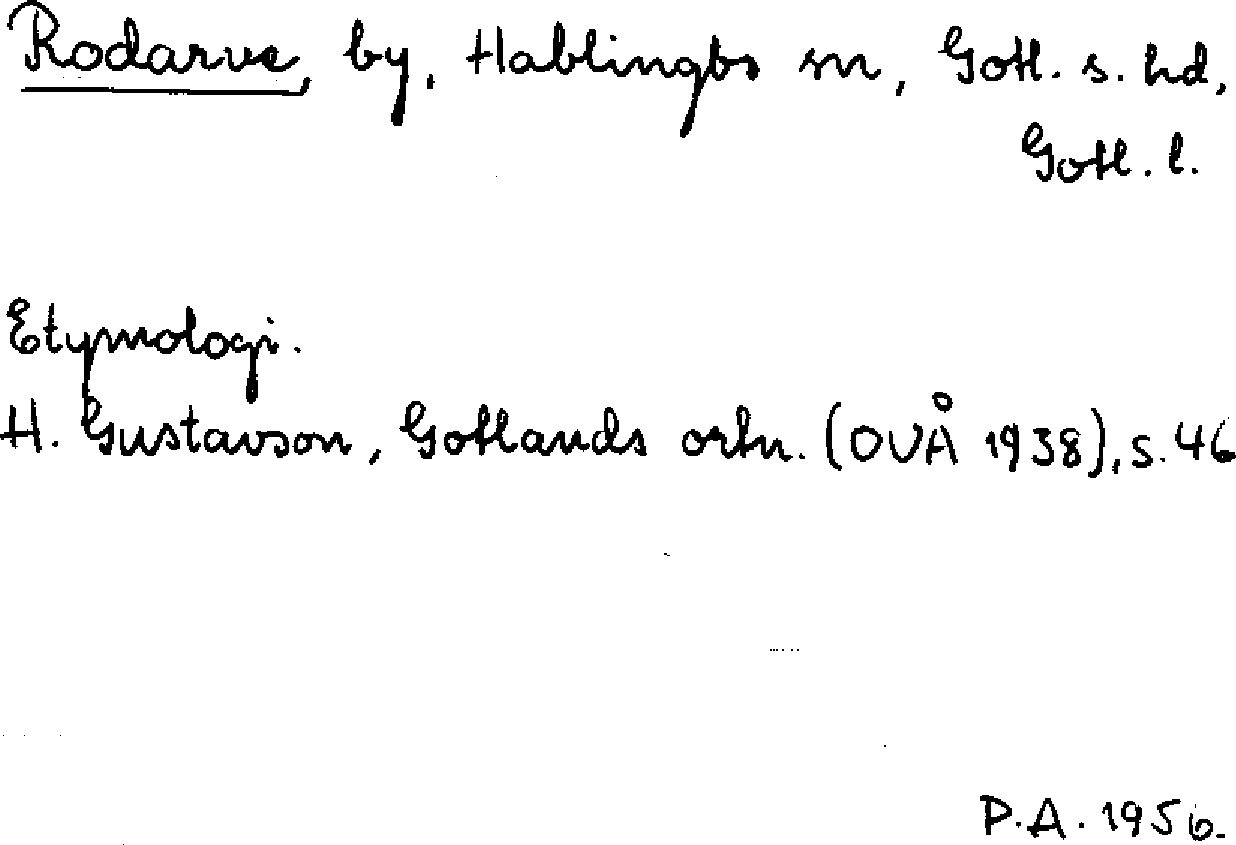 Rodarve, by, Hablingbo sn, Gotl. s. hd,
Gotl. l.
Etymologi.
H. Gustavson, Gotlands ortn. (OUÅ 1938), s. 46
P.A. 1956.